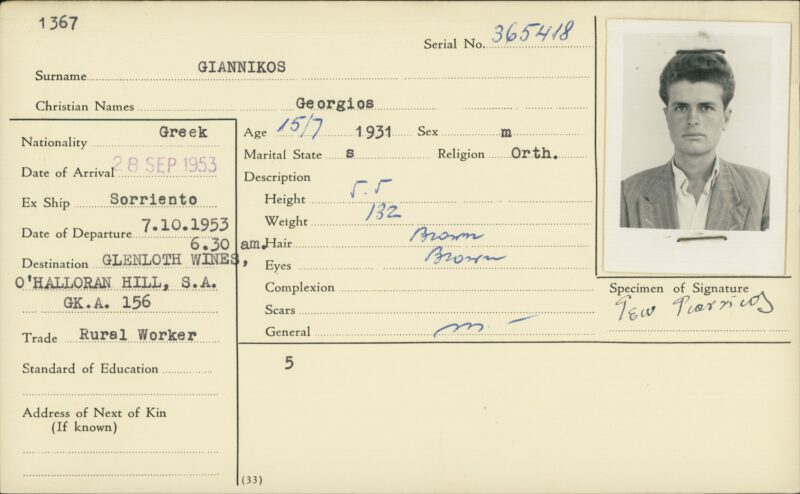 1367
Serial No. 365418
Surname GIANNIKOS
Christian Names Georgios
Nationality Greek
Date of Arrival 28 SEP 1953
Ex Ship Sorriento
Date of Departure 7.10.1953
6.30 am.
Destination GLENLOTH WINES,
O'HALLORAN HILL, S.A.
GK.A. 156
Trade Rural Worker
Standard of Education
Address of Next of Kin
(If known)
Age 15/7 1931 Sex m
Marital State s Religion Orth.
Description
Height 5.5
Weight 132
Hair Brown
Eyes Brown
Complexion
Scars
General
5
(33)
Specimen of Signature